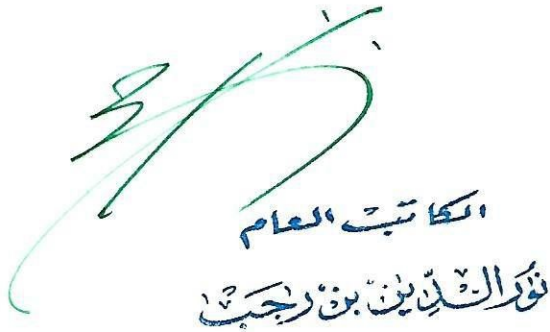 الكاتب العام
نور الدين بن رجب